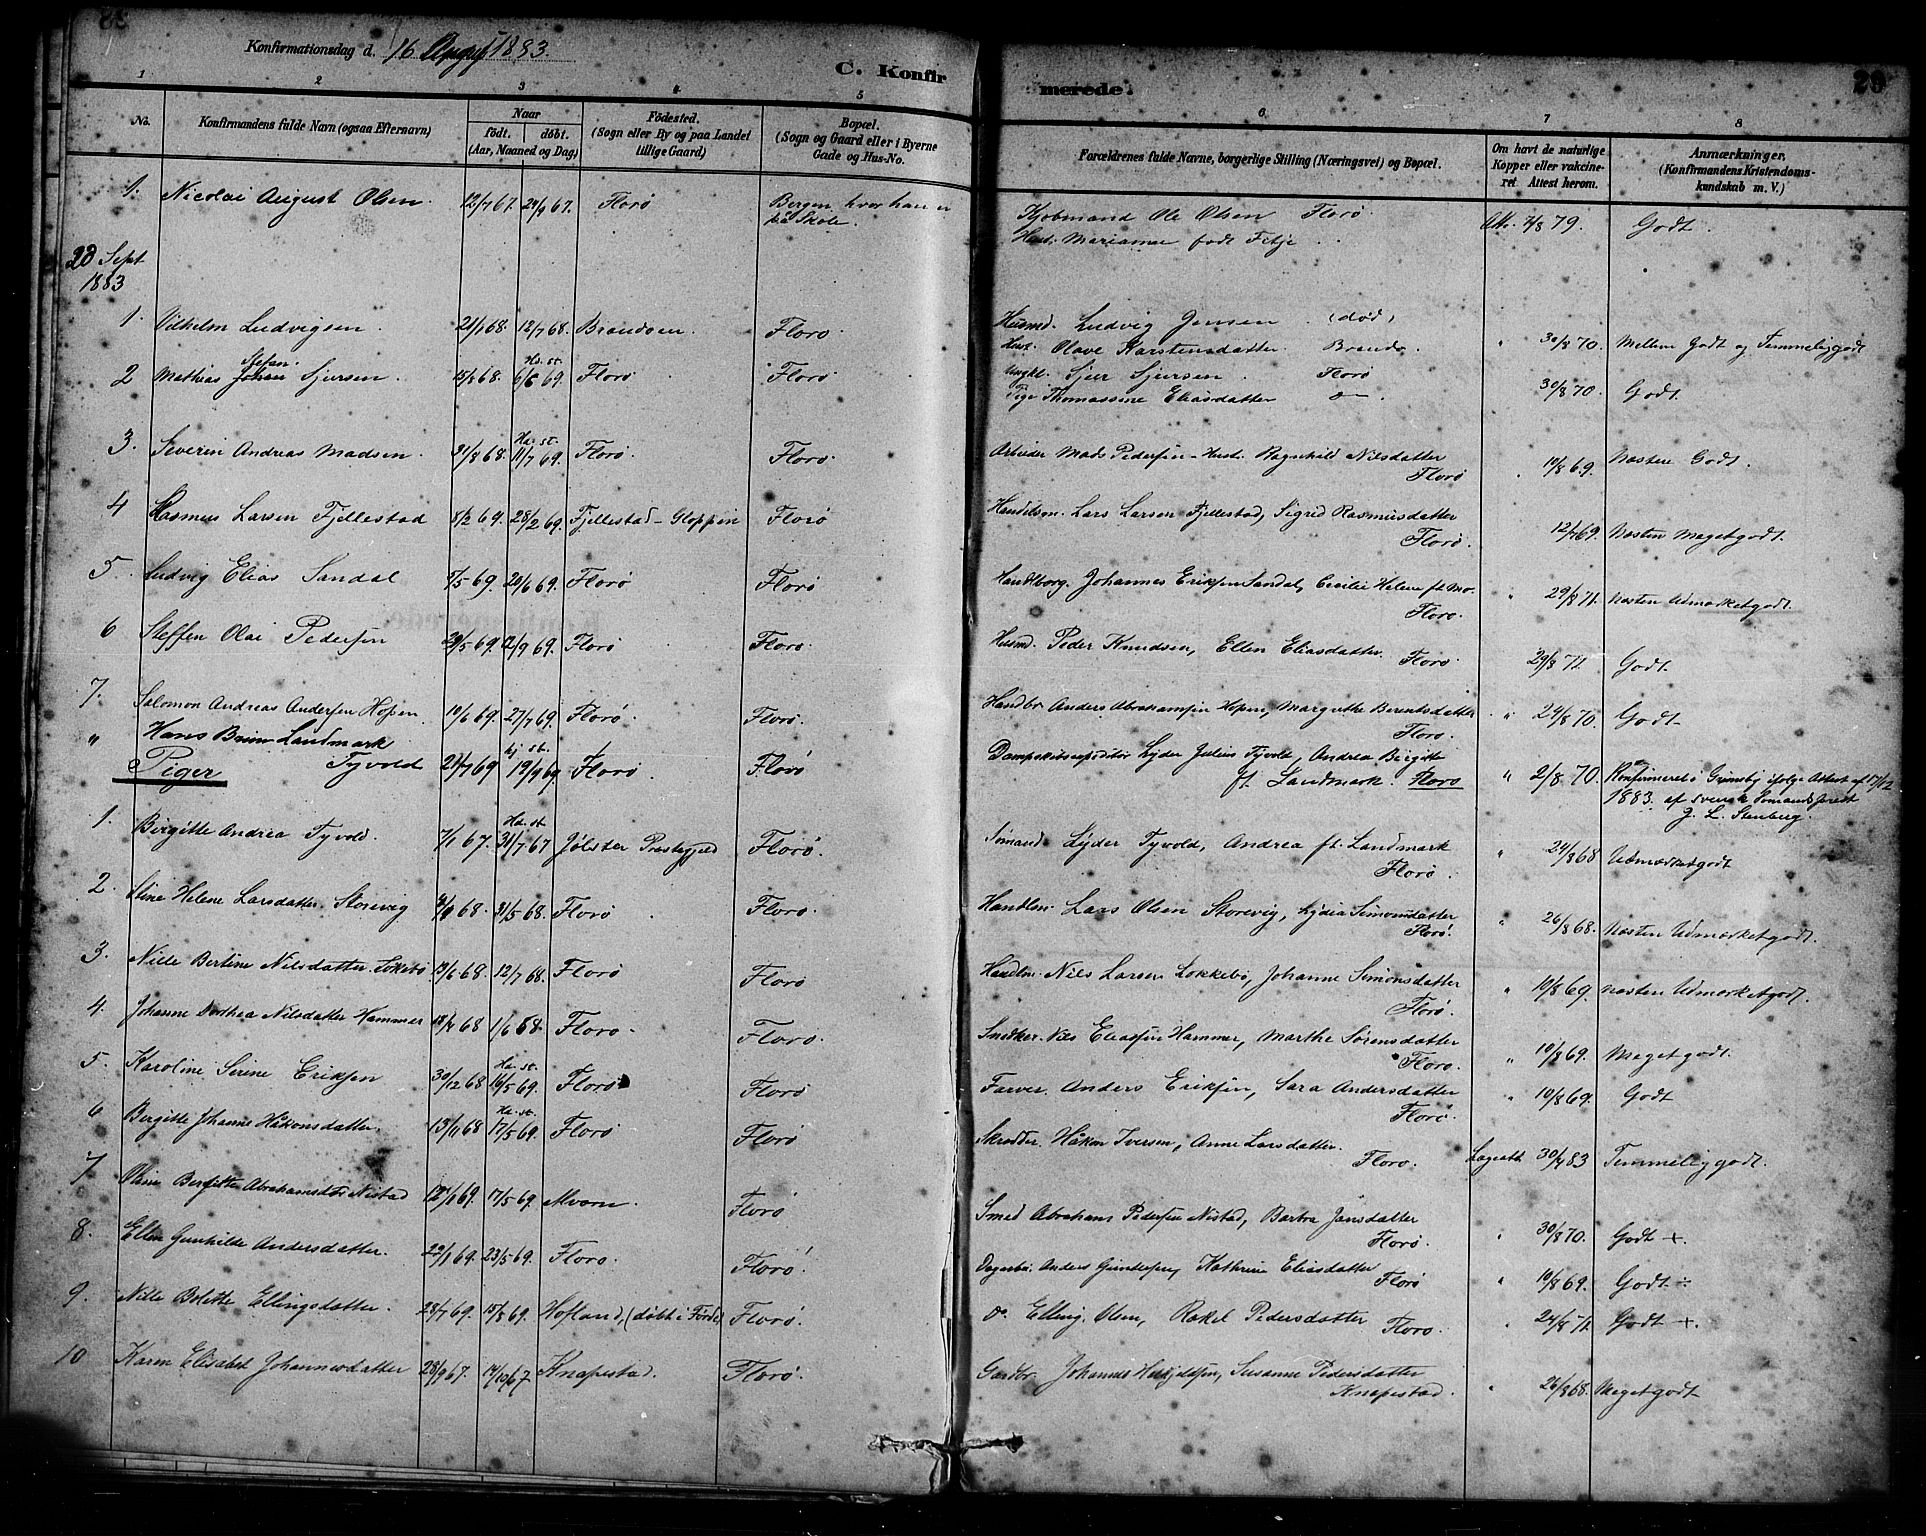 Konfirmationsdag d. 16 August 1883.
C. Konfirmerede.
20
1 2 3 4 5 6 7 8
No.
Konfirmandens fulde Navn (ogsaa Efternavn)
Naar
født. døbt.
(Aar, Maaned og Dag)
Fødested.
(Sogn eller By og paa Landet
tillige Gaard)
Bopæl.
(Sogn og Gaard eller i Byerne
Gade og Hus-No.
Forældrenes fulde Navne, borgerlige Stilling (Næringsvei) og Bopæl.
Om havt de naturlige
Kopper eller vakcine-
ret Attest herom.
Anmærkninger.
(Konfirmandens Kristendoms-
kundskab m. V.)
1. Nicolai August Olsen. 12/7 67. 24/9 67. Florø Bergen hvor han er
på Skole.
Kjøbmand Ole Olsen Florø. Att. 2/8 79. Godt.
Hust. Marianne født Fitje
20 Sept
1883
1. Vilhelm Ludvigsen. 21/1 68. 12/7 68. Brandsøen. Florø.
Husmd. Ludvig Jensen (død)
Hust. Olave Karstensdatter Brandsø. " 30/8 70. Mellem Godt og Temmeliggodt
2 Mathias Stefan Sjursen. 15/8 68. Hd. st. 6/6 69. Florø Florø
Ungkl. Sjur Sjursen. Florø
Pige Thomassine Eliasdatter do. 30/8 70. Godt.
3. Severin Andreas Madsen. 31/8 68. Hd. st. 11/7 69. Florø Florø.
Arbeider Mads Pedersen - Hust. Ragnhild Nilsdatter
Florø 10/8 69. Næsten Godt.
4 Rasmus Larsen Fjellestad 8/2 69. 28/2 69. Fjellestad - Gloppen Florø
Handelsm. Lars Larsen Fjellestad, Sigrid Rasmusdatter
Florø. 12/7 69. Næsten Megetgodt.
5. Ludvig Elias Sandal 5/5 69. 20/6 69. Florø Florø
Handlborg. Johannes Eriksen Sandal, Cecilie Helene ft. Mo.
Florø. " 29/8 71. Næsten Udmærketgodt.
6 Steffen Olai Pedersen 29/5 69. 12/9 69. Florø Florø.
Husmd. Peder Knudsen, Ellen Eliasdatter. Florø. 29/8 71. Godt.
7. Salomon Andreas Andersen Hopen. 10/6 69. 27/7 69. Florø. Florø.
Handbr. Anders Abrahamsen Hopen, Margrethe Berentsdatter
Florø. " 24/8 70. Godt
" Hans Brun Landmark
Tyvold 21/7 69 hj. st. 19/9 69. Florø. Florø
Dampskibsexpeditør Lyder Julius Tyvold, Andrea Birgitte
ft. Landmark. Florø " 2/8 70. Konfirmeret i Grimsby ifølge Attest af 17/12
1883 af svensk Sømandsprest
J. L. Stenberg.
Piger
1. Birgitte Andrea Tyvold. 7/1 67. Hd. st 31/7 67 Jølster Præstegjeld Florø.
Sømand Lyder Tyvold, Andrea ft. Landmark
Florø. " 24/8 68 Udmærketgodt
2. Stine Helene Larsdatter Storevig 31/5 68. Florø Florø.
Handlm. Lars Olsen Storevig, Lydia Simonsdatter
Florø. " 26/8 68. Næsten Udmærketgodt.
3. Nille Bertine Nilsdatter Løkkebø 13/6 68 12/7 68. Florø Florø
Handlm. Nils Larsen Løkkebø, Johanne Simonsdatter
Florø. " 10/8 69. Næsten Udmærketgodt.
4. Johanne Dorthea Nilsdatter Hammer 18/4 68 1/6 68. Florø. Florø.
Snedker. Nils Eliassen Hammer, Marthe Sørensdatter
Florø. " 10/8 69. Megetgodt.
5. Karoline Serine Eriksen 30/12 68 Hd. st. 16/5 69. Florø Florø
Farver. Anders Eriksen, Sara Andersdatter
Florø. " 10/8 69. Godt
6 Birgitte Johanne Håkonsdatter. 13/11 68 Hd. st. 17/5 69. Florø Florø
Skrædder. Håkon Iversen, Anne Larsdatter.
Florø. Lægeatt. 30/4 83 Temmeliggodt.
7 Oline Bergitte Abrahamsdtr Nistad 12/1 69. 17/5 69. Alvøen. Florø
Smed Abraham Pedersen Nistad, Barbra Jansdatter
Florø. " 30/8 70. Godt +.
8. Ellen Gunhilde Andersdatter. 22/1 69. 23/5 69. Florø. Florø.
Dagarb. Anders Gundersen, Kathrine Eliasdatter Florø " 10/8 69. Godt ÷
9. Nille Bolette Ellingsdatter. 28/7 69. 15/8 69. Hofland, (døbt i Førde) Florø.
do. Elling Olsen, Rakel Pedersdatter Florø. " 24/8 71. Godt +.
10 Karen Elisabet Johannesdatter 28/9 67. 14/10 67 Knapestad. Florø.
Gardbr. Johannes Pedersdatter
Knapestad. " 26/8 68. Megetgodt